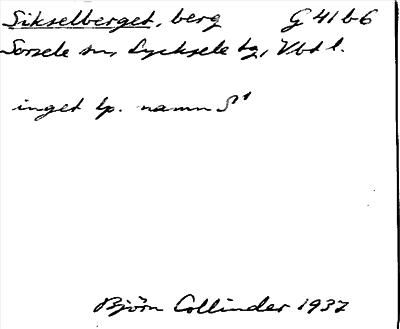 Sikselberget, berg G 41 b 6
Sorsele sn, Lycksele tg, Vbt l.
inget lp. namn S¹
Björn Collinder 1937